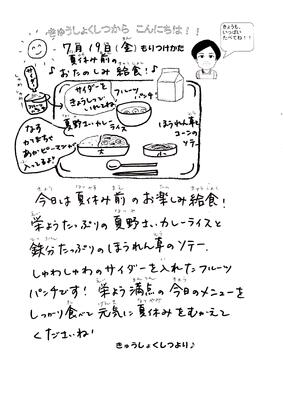 きゅうしょくしつから こんにちは!!
きょうも、
いっぱい
たべてね!!
7月19日(金)もりつけかた
夏休み前の
♪おたのしみ給食!♪
サイダーを
きょうしつで
いれてね!
フルーツ
パンチ
なす
かぼちゃ
あかピーマンが
入ってるよ!
夏野さいカレーライス
ほうれん草と
コーンの
ソテー
大
小
今日は夏休み前のお楽しみ給食!
栄ようたっぷりの夏野さいカレーライスと
鉄分たっぷりのほうれん草のソテー、
しゅわしゅわのサイダーを入れたフルーツ
パンチです!栄よう満点の今日のメニューを
しっかり食べて元気に夏休みをむかえて
くださいね
きゅうしょくしつより♪